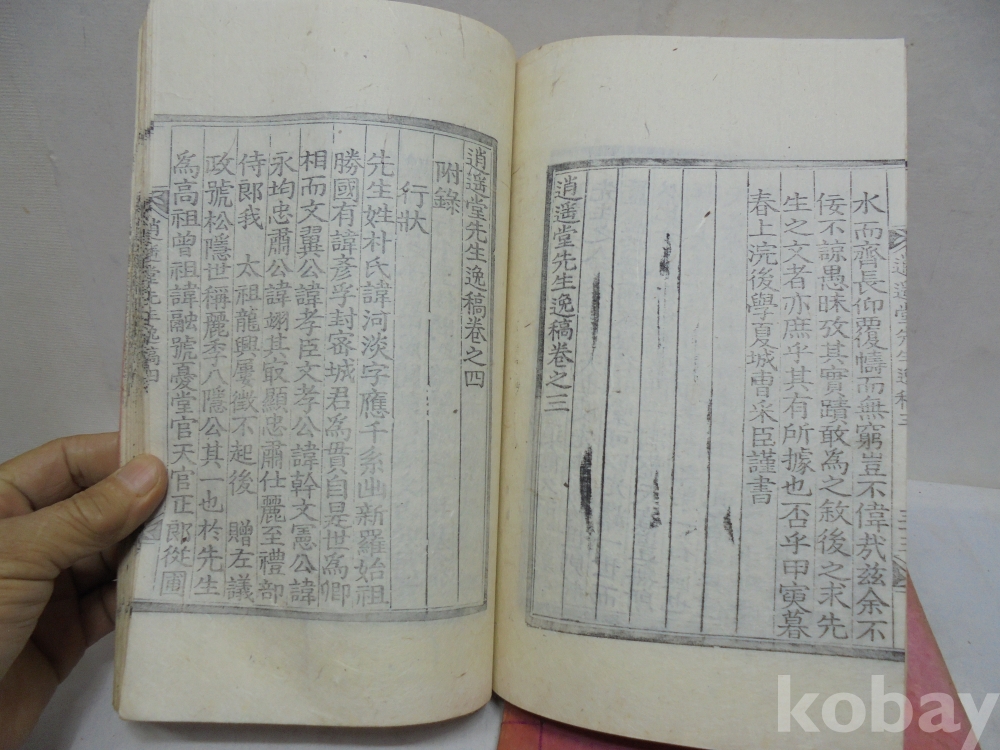 水而齊長仰覆幬而無窮豈不偉哉玆余不
佞不諒愚昧攷其實蹟敢為之敘後之求先
生之文者亦庶乎其有所據也否乎甲寅暮
春上浣後學夏城曺采臣謹書
逍遥堂先生逸稿卷之三
逍遥堂先生逸稿卷之四
附錄
行狀
先生姓朴氏諱河淡字應千系出新羅始祖
勝國有諱彦孚封密城君為貫自是世為卿
相而文翼公諱孝臣文孝公諱幹文憲公諱
永均忠肅公諱翊其最顯忠肅仕麗至禮部
侍郎我 太祖龍興屢徵不起後 贈左議
政號松隱世稱麗季八隱公其一也於先生
為高祖曾祖諱融號憂堂官天官正郎從圃
逍遥堂先生逸稿四
kobay